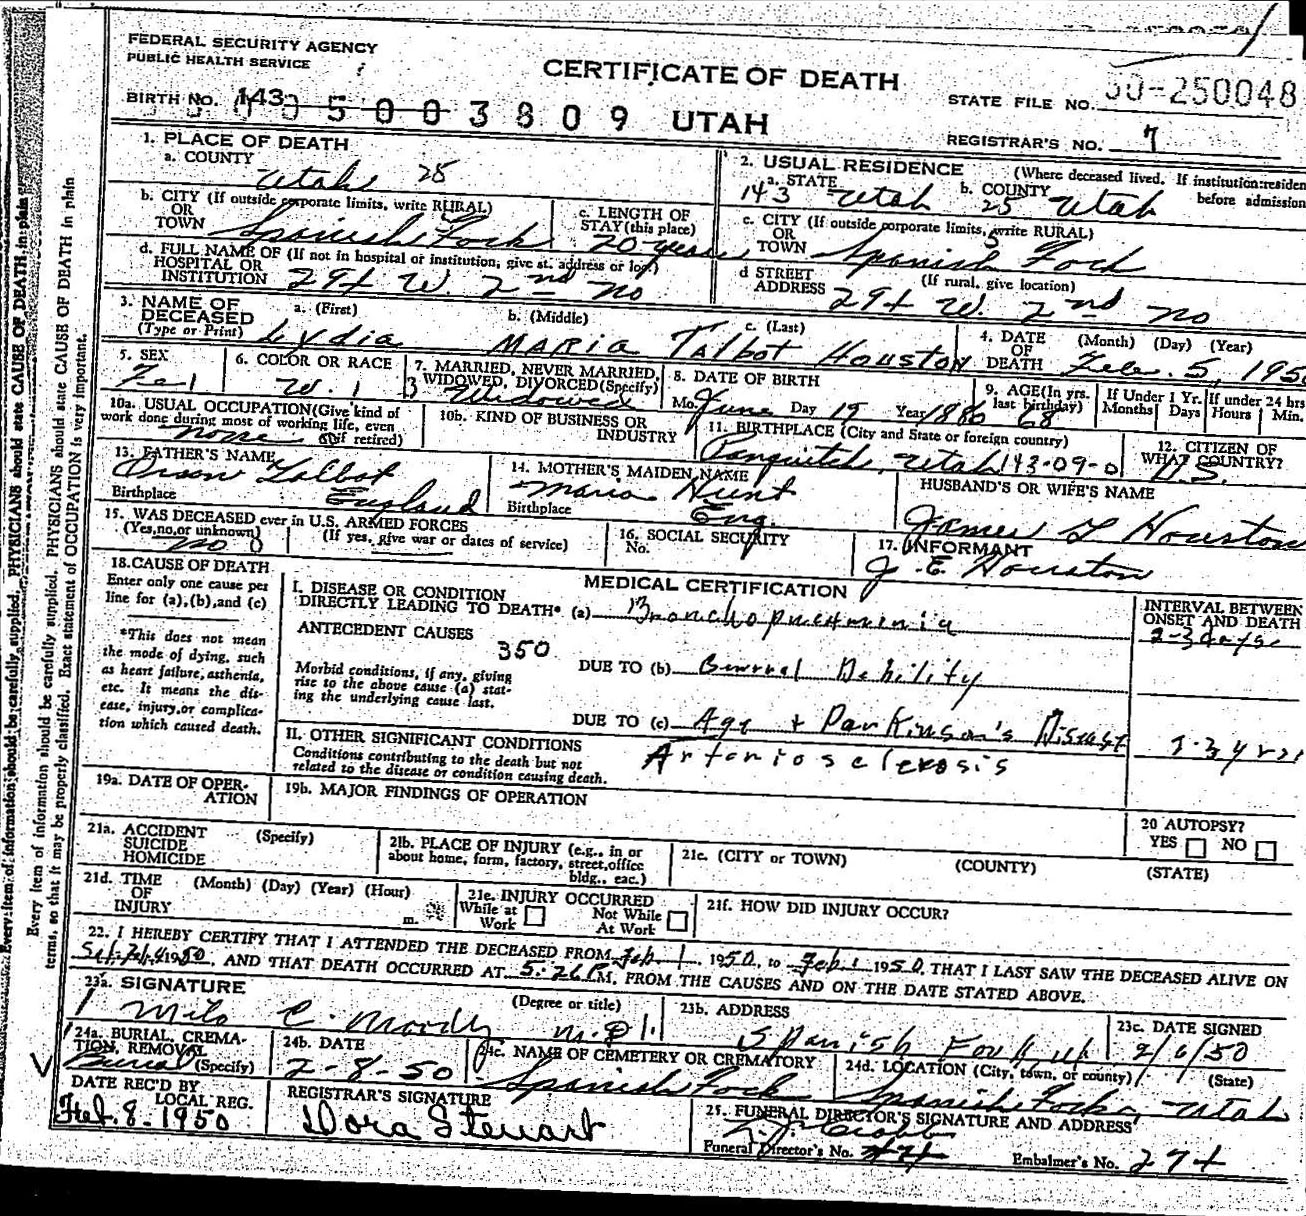 FEDERAL SECURITY AGENCY
PUBLIC HEALTH SERVICE
CERTIFICATE OF DEATH
STATE FILE NO. 50-250048
BIRTH NO. 143
5003809 UTAH
REGISTRAR'S NO. 7
1. PLACE OF DEATH
a. COUNTY
Utah 25
2. USUAL RESIDENCE (Where deceased lived. If institution: residen
before admission
a. STATE
143 Utah
b. COUNTY
25 Utah
b. CITY (If outside corporate limits, write RURAL)
OR
TOWN Spanish Fork
c. LENGTH OF
STAY (this place)
20 years
c. CITY (If outside corporate limits, write RURAL)
OR
TOWN Spanish Fork
d. FULL NAME OF (If not in hospital or institution, give st. address or loc.)
HOSPITAL OR
INSTITUTION 294 W. 2nd no
d STREET (If rural, give location)
ADDRESS 294 W. 2nd no
3. NAME OF
DECEASED
(Type or Print)
a. (First) b. (Middle) c. (Last)
Lydia Maria Talbot Houston
4. DATE (Month) (Day) (Year)
OF
DEATH Feb. 5, 195
5. SEX
Fe
6. COLOR OR RACE
W. 1
7. MARRIED, NEVER MARRIED,
WIDOWED, DIVORCED (Specify)
3 Widowed
8. DATE OF BIRTH
Mo. June Day 19 Year
9. AGE (In yrs.
last birthday)
68
If Under 1 Yr.
Months Days
If under 24 hrs
Hours Min.
10a. USUAL OCCUPATION (Give kind of
work done during most of working life, even
if retired)
none
10b. KIND OF BUSINESS OR
INDUSTRY
11. BIRTHPLACE (City and State or foreign country)
Panguitch, Utah 143-09-0
12. CITIZEN OF
WHAT COUNTRY?
U.S.
13. FATHER'S NAME
Orson Talbot
Birthplace England
14. MOTHER'S MAIDEN NAME
Maria Hunt
Birthplace Eng.
HUSBAND'S OR WIFE'S NAME
James Houston
15. WAS DECEASED ever in U.S. ARMED FORCES
(Yes, no, or unknown) (If yes, give war or dates of service)
no
16. SOCIAL SECURITY
No.
17. INFORMANT
J. E. Houston
18. CAUSE OF DEATH
Enter only one cause per
line for (a), (b), and (c)
*This does not mean
the mode of dying, such
as heart failure, asthenia,
etc. It means the dis-
ease, injury, or complica-
tion which caused death.
MEDICAL CERTIFICATION
I. DISEASE OR CONDITION
DIRECTLY LEADING TO DEATH* (a) Bronchopneumonia
ANTECEDENT CAUSES
350
Morbid conditions, if any, giving
rise to the above cause (a) stat-
ing the underlying cause last.
DUE TO (b) General Debility
DUE TO (c) Age + Parkinson's Disease
II. OTHER SIGNIFICANT CONDITIONS
Conditions contributing to the death but not
related to the disease or condition causing death.
Arteriosclerosis
INTERVAL BETWEEN
ONSET AND DEATH
2-3 days
19a. DATE OF OPER-
ATION
19b. MAJOR FINDINGS OF OPERATION
20 AUTOPSY?
YES NO
21a. ACCIDENT (Specify)
SUICIDE
HOMICIDE
21b. PLACE OF INJURY (e.g., in or
about home, form, factory, street, office
bldg., eac.)
21c. (CITY or TOWN) (COUNTY) (STATE)
21d. TIME (Month) (Day) (Year) (Hour)
OF
INJURY m.
21e. INJURY OCCURRED
While at Work
Not While At Work
21f. HOW DID INJURY OCCUR?
22. I HEREBY CERTIFY THAT I ATTENDED THE DECEASED FROM Feb 1 1950, to Feb. 1950, THAT I LAST SAW THE DECEASED ALIVE ON
AND THAT DEATH OCCURRED AT 5:26 PM, FROM THE CAUSES AND ON THE DATE STATED ABOVE.
23a. SIGNATURE (Degree or title)
Milo C. Moody M.D.
23b. ADDRESS
Spanish Fork ut
23c. DATE SIGNED
2/6/50
24a. BURIAL, CREMA-
TION, REMOVAL
(Specify)
Burial
24b. DATE
2-8-50
24c. NAME OF CEMETERY OR CREMATORY
Spanish Fork
24d. LOCATION (City, town, or county) (State)
Spanish Fork, Utah
DATE REC'D BY
LOCAL REG.
Feb. 8-1950
REGISTRAR'S SIGNATURE
Dora Stewart
25. FUNERAL DIRECTOR'S SIGNATURE AND ADDRESS
Funeral Director's No.
Embalmer's No. 274
Every item of information should be carefully supplied. PHYSICIANS should state CAUSE OF DEATH in plain
Every item of information should be carefully supplied. PHYSICIANS should state CAUSE OF DEATH in plain
terms, so that it may be properly classified. Exact statement of OCCUPATION is very important.